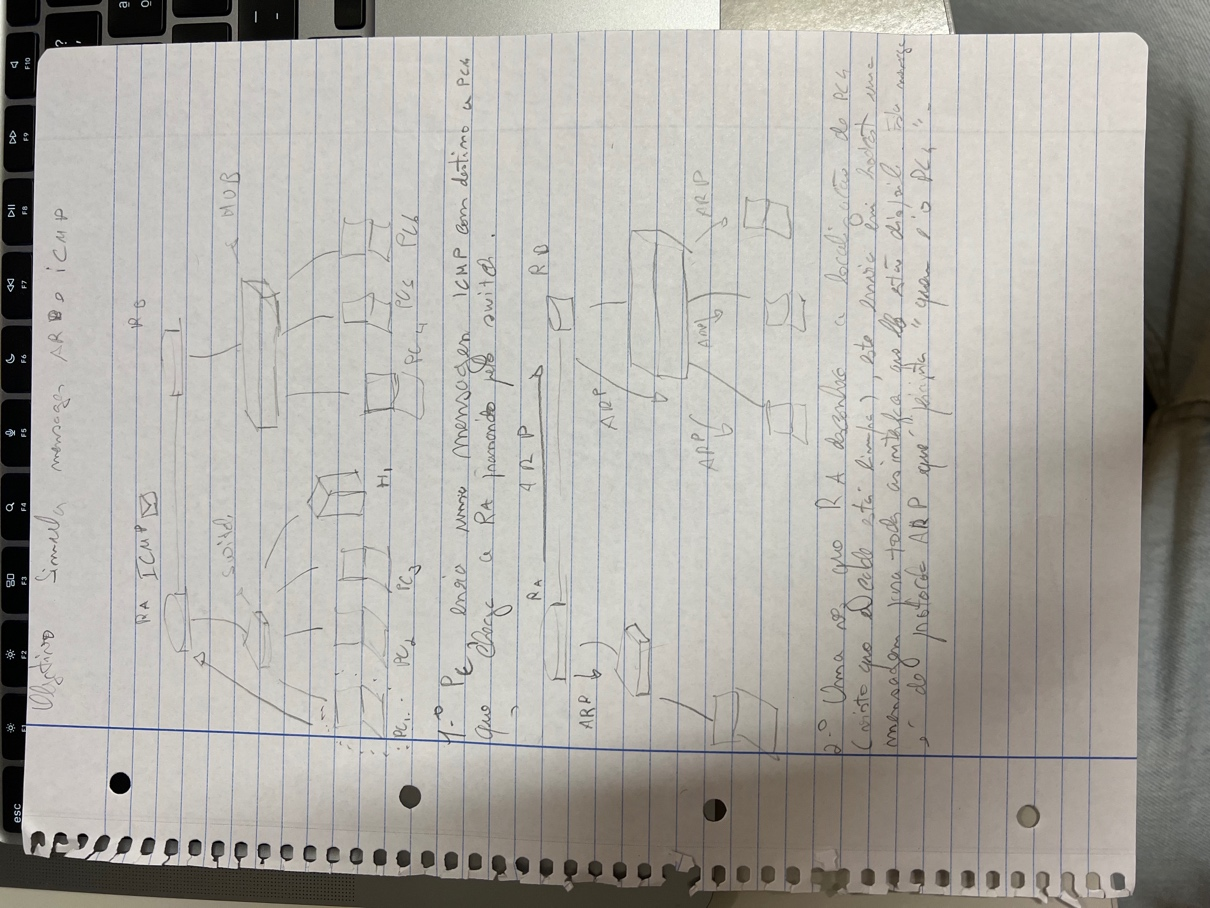 Objetivo Simula mensagem ARP e ICMP
RA ICMP RB
switch HUB
PC1 PC2 PC3 H1 PC4 PC5 PC6
1º PC envio uma mensagem ICMP com destino a PC4
que chega a RA passando pelo switch.
RA ARP RB
ARP ARP
ARP ARP ARP
2º Uma vez que RA desconhece a localização do PC4
(visto que a tabela está limpa), este envia em uma
mensagem para todas as interfaces que lhe estão
é do protocolo ARP que pergunta "quem é o PC4".
esc
F1
F2
F3
F4
F5
F6
F7
F8
F9
F10